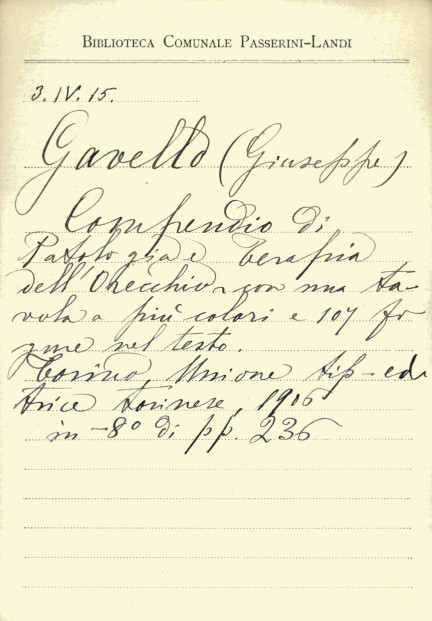 Biblioteca Comunale Passerini-Landi
3.IV.15.
Gavello (Giuseppe)
Compendio di
Patologia e Terapia
dell'Orecchio, con una ta-
vola a più colori e 107 fi-
gure nel testo.
Torino, Unione tip-edi
trice torinese, 1906
in-8° di pp. 236